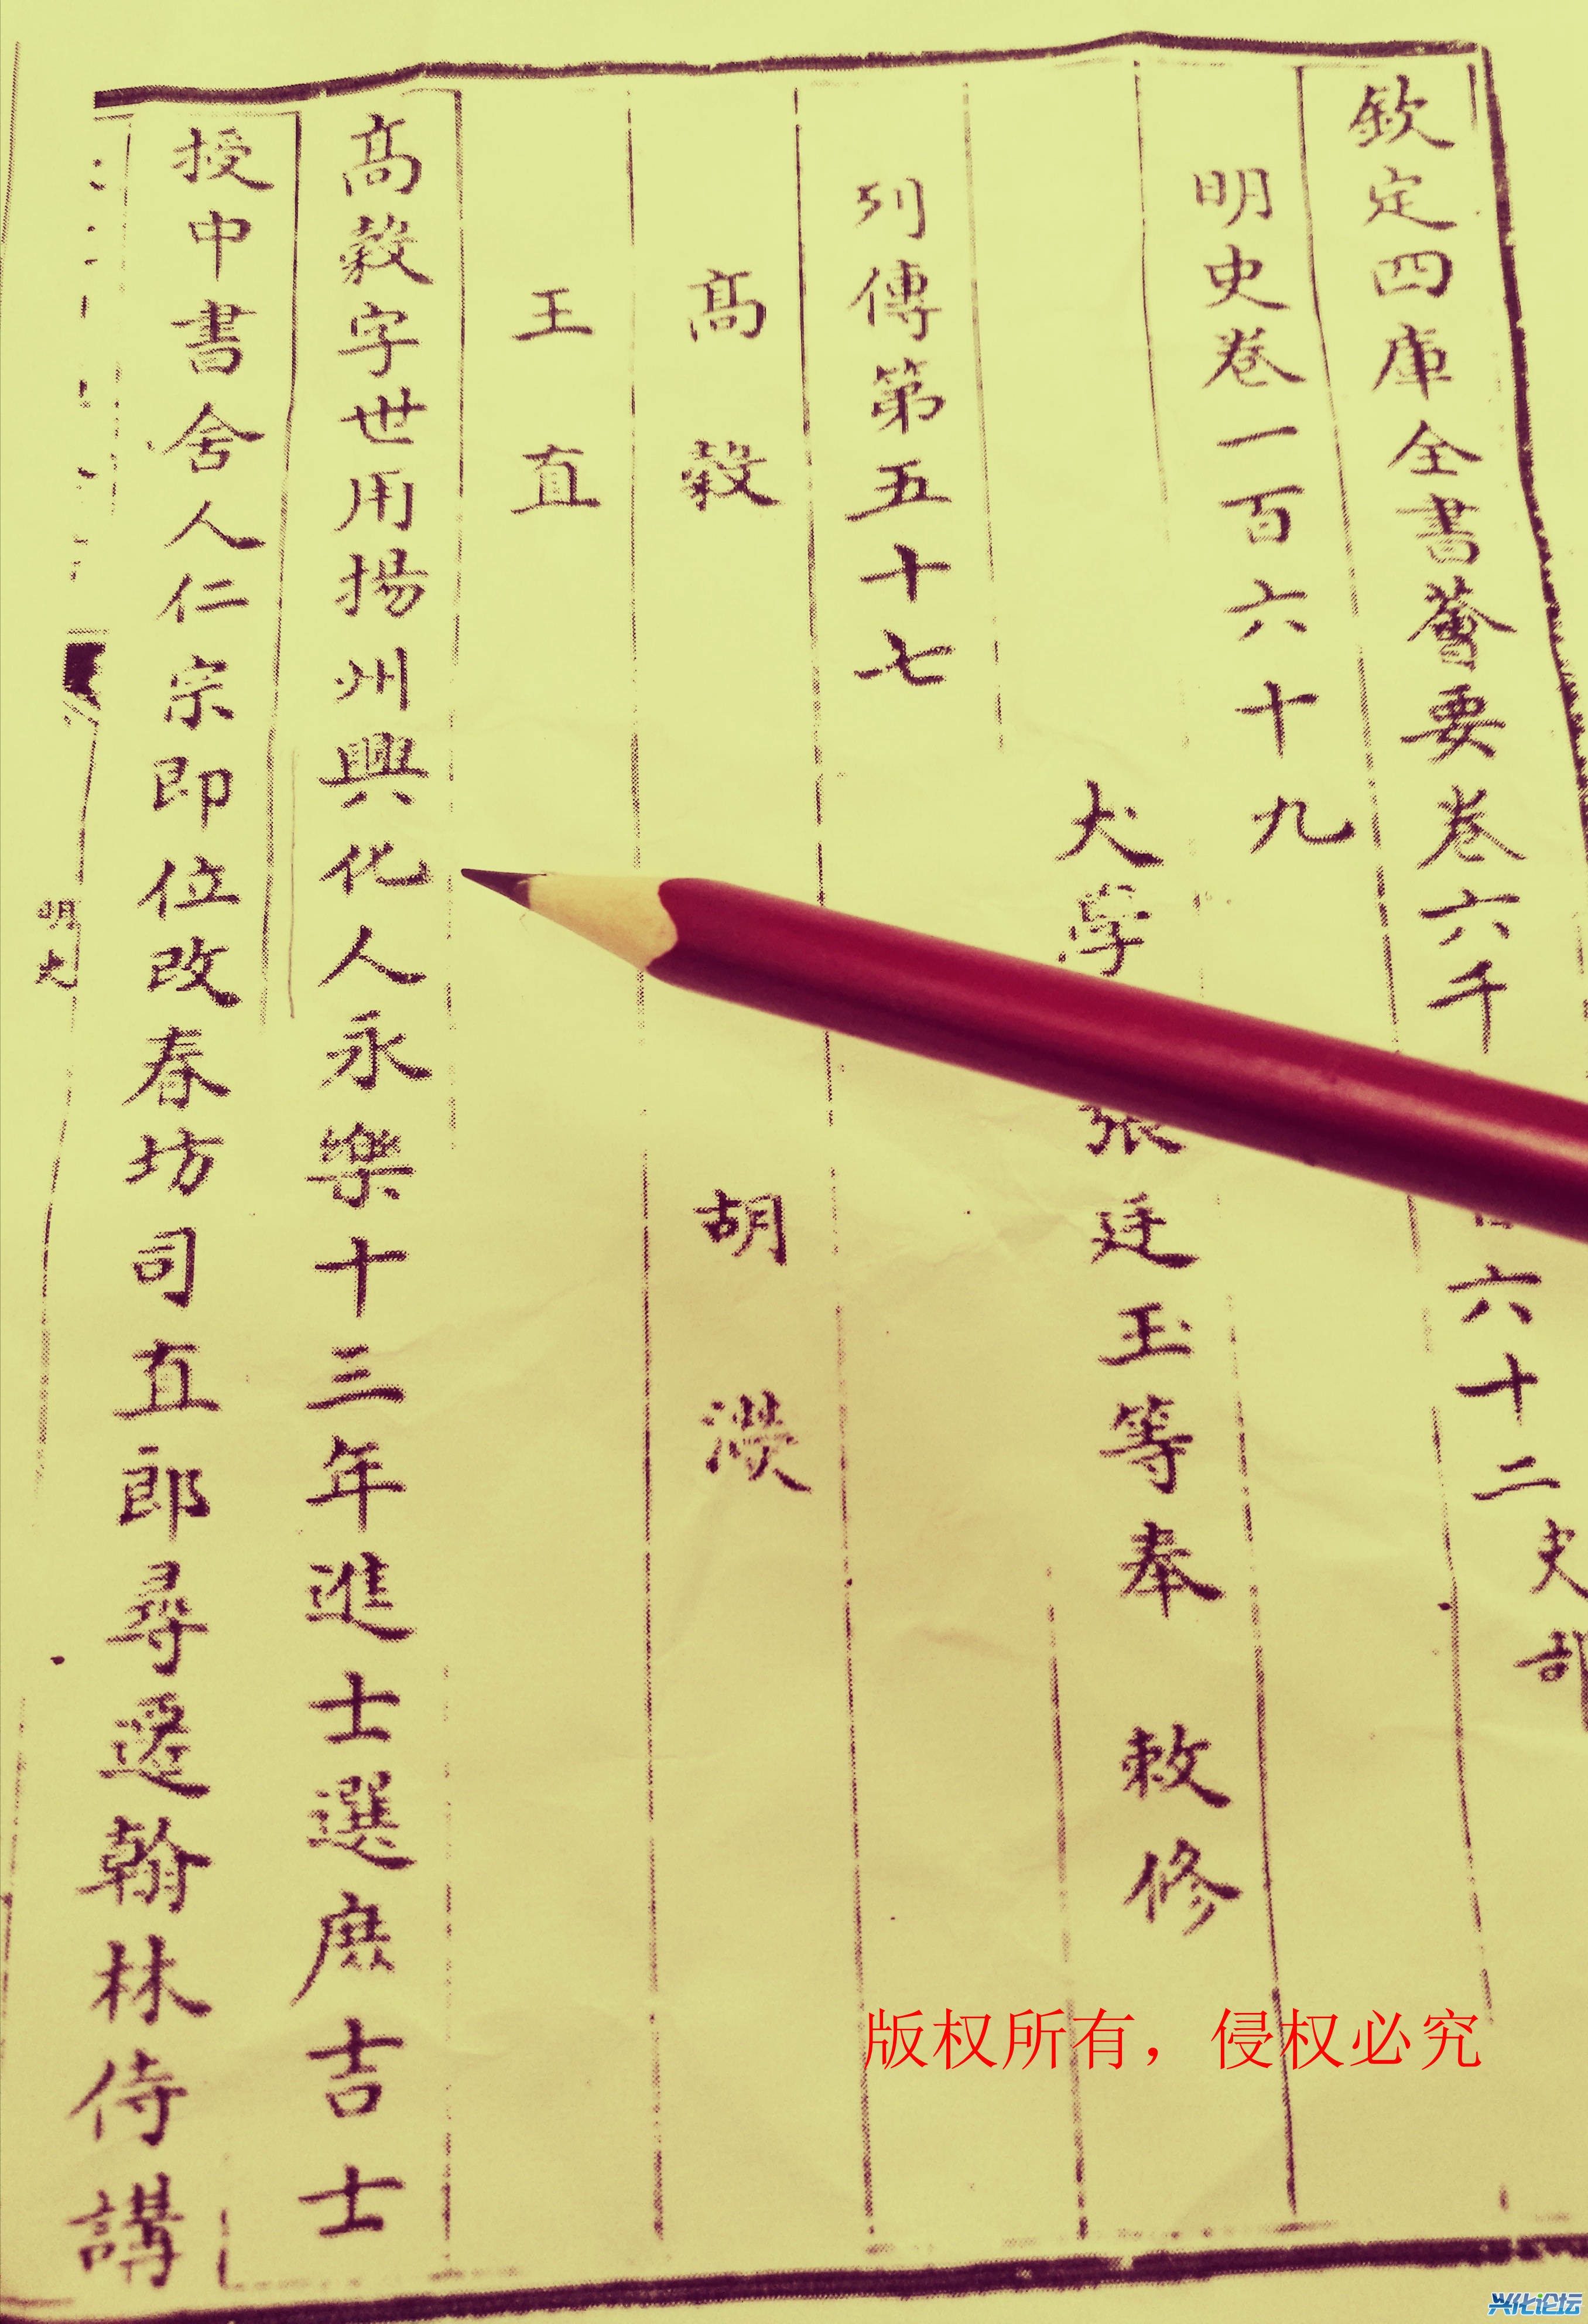 欽定四庫全書薈要卷六千
百六十二史部
明史卷一百六十九
大學
張廷玉等奉 敕修
列傳第五十七
高穀 胡濙
王直
高穀字世用揚州興化人永樂十三年進士選庶吉士
授中書舍人仁宗即位改春坊司直郎尋遷翰林侍講
明史
版权所有，侵权必究
兴化论坛